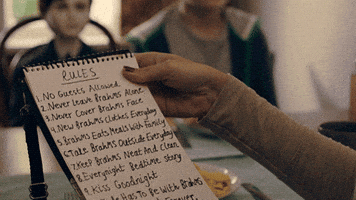 RULES
1. No Guests Allowed
2. Never Leave Brahms Alone
3. Never Cover Brahms Face
4. New Brahms Clothes Everyday
5. Brahms Eats Meals With Family
6. Take Brahms Outside Everyday
7. Keep Brahms Neat And Clean
8. Everynight Bedtime story
9. Kiss Goodnight
Has To Be With Brahms
Forever